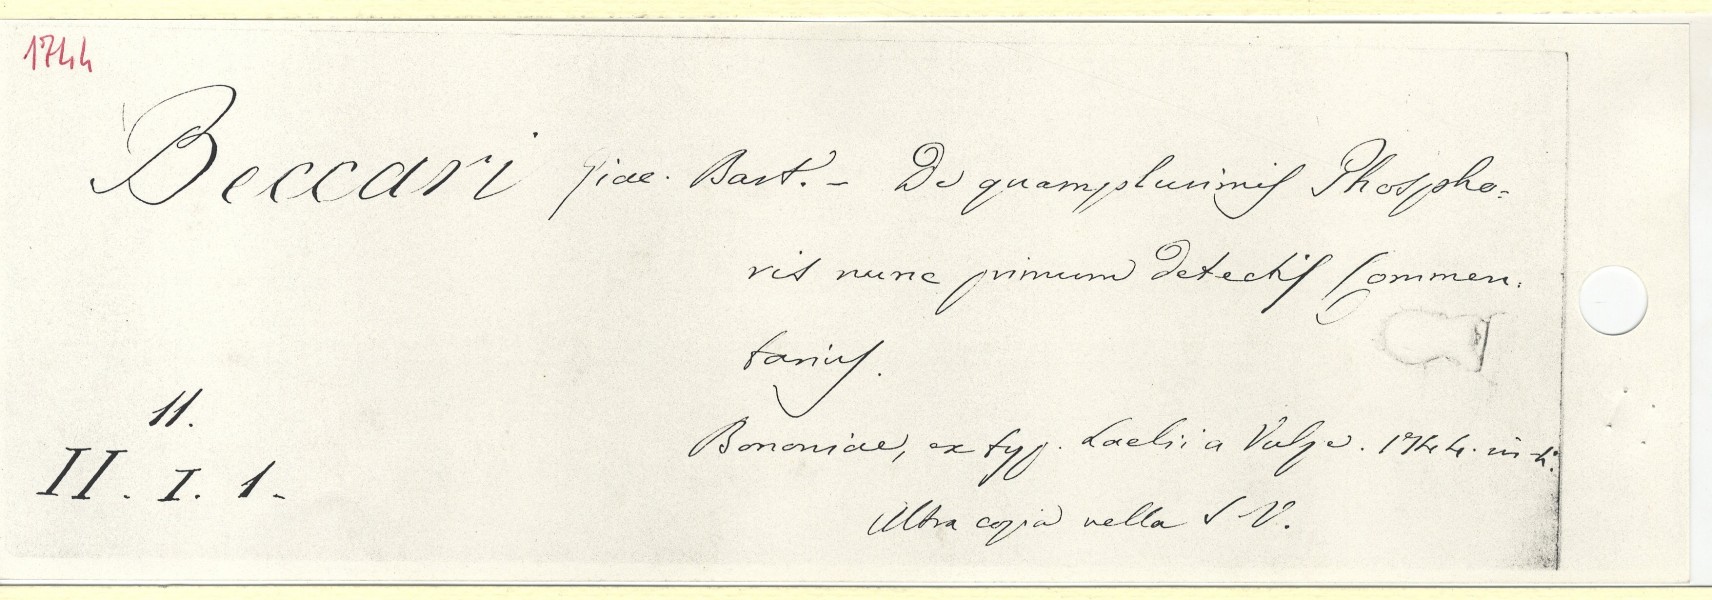 1744
Beccari Giac. Bart. - De quamplurimis Phospho-
ris nunc primum detectis Commen-
tarius.
11.
Bononiae, ex typ. Laelii a Vulpe. 1744. in-4.°
II. I. 1.
Altra copia nella S V.